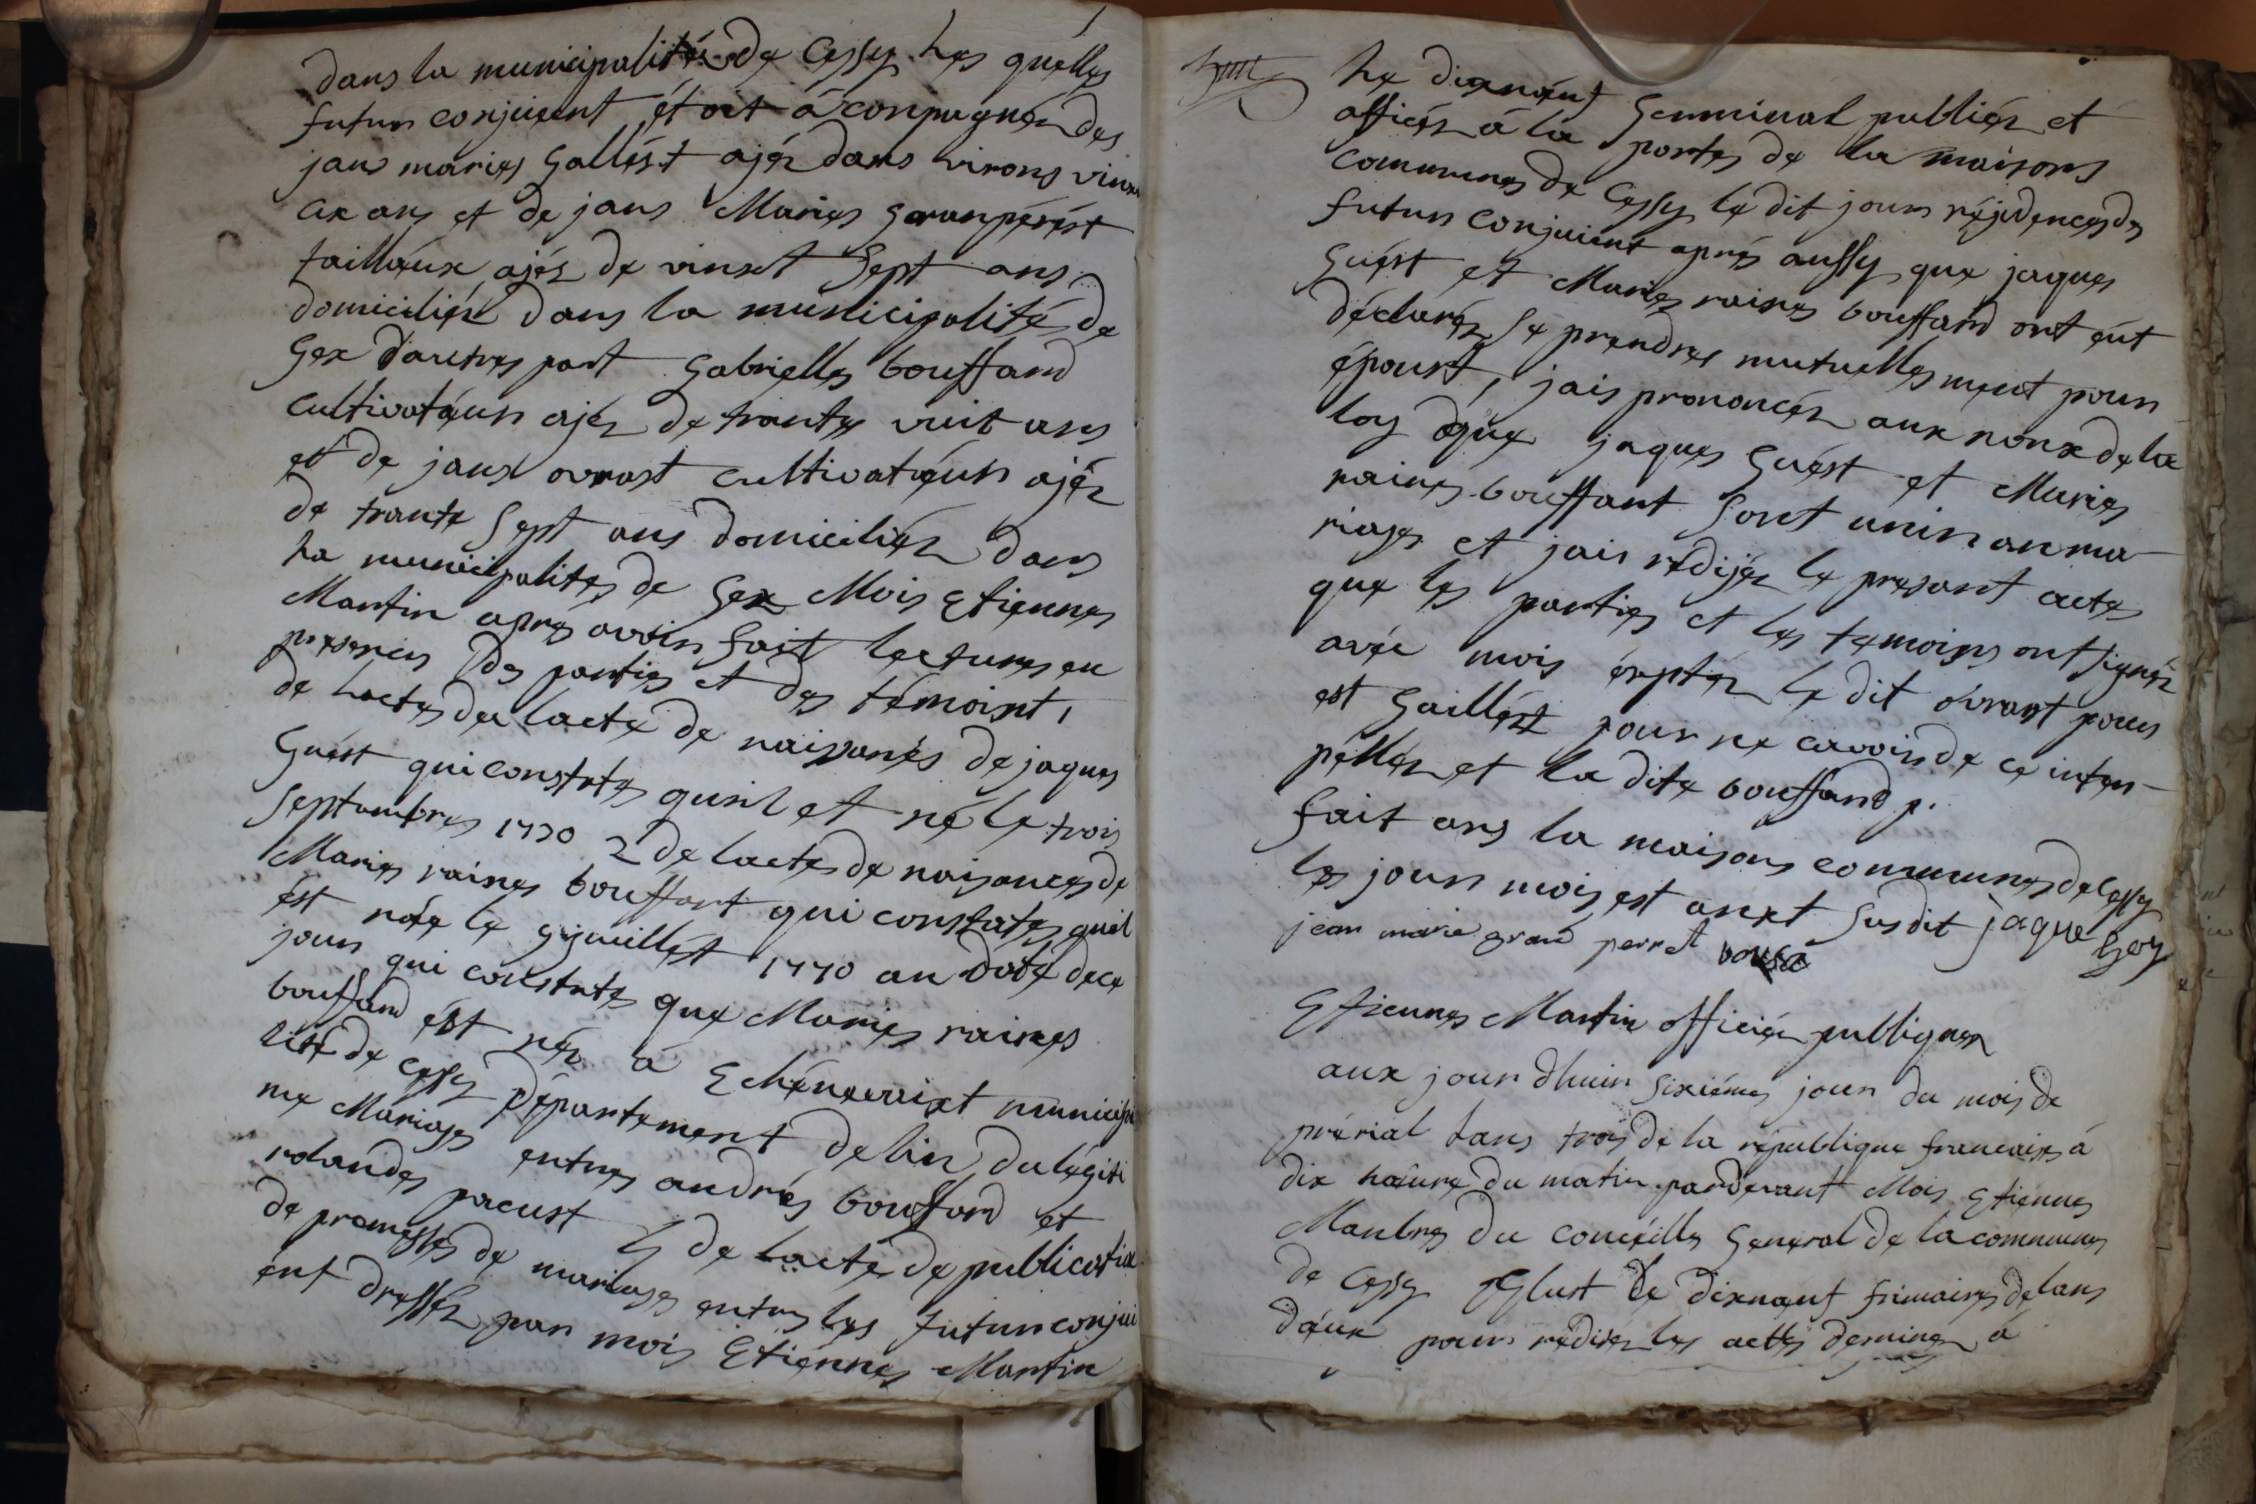 dans la municipalité de Cessy Les quélles
futur conjuient étoit aconpagnéz des
jans maries Gallést ajéz dans virons vinxt
cix ans et de jans Maries Garanpérést
tailláux ajéz de vinxt Sept ans
domiciliéz dans la municipalités de
Gex d'autres part Gabrielles bouffard
cultivatéur ajéz de trantes vuit ans
et de jans ovrast cultivatéur ajéz
de trante Sept ans domiciliéz dans
La municipalites de Gex Mois Etiennes
Martin aprés avoir fait lectures en
presences des parties et des témoint,
de Lactes du lacte de naissanés de jaques
Guést qui constates quil et né le trois
Septambres 1770 2 de lactes de naisances de
Maries raines bouffart qui constates quil
est née le 9 juillést 1770 an date de ce
jour qui constates que Maries raines
bouffard ést néz à Echénevaixt municipa
lité de Cessy Département de lin du légiti
me Mariages entres andrés bouffard et
rolandes pacust 4 de lacte de publicatix
de promesses de mariages entres les futur conjui
ént dresséz par mois Etiénnes Martin
Le dixnéuf Germinal publiéz et
afficéz á la portes de la maisons
communes de Cessy le dit jour réjidences des
futur conjuient aprés aussy que jaques
Guést et Maries raines bouffard ont éut
déclaréz se prendres mutuelles ment pour
époust, jais prononcéz aux nonx de la
loy que jaques Guést et Maries
raines bouffant Sont unir an ma
riages et jais redijéz le presant actes
que les parties et les temoins ont signéz
avéc mois éxptéz le dit óvrast pour
est Gailléxt pour ne cavoir de ce inter-
pélléz et la dite bouffard p.
fait ans la maisons communes de Cessy
les jour mois est anxt Susdit jaque Gay
jean marie grand perret
Etiennes Martin officiér publiques
aux jour dhuir Sixiémes jour du mois de
prérial Lans trois de la république francaises á
dix háure du matin pardevant Mois Etiennes
Manbres du conceills General de la communes
de Cessy Eslust Le dixnéuf frimaires de lans
déux pour rediséz les actes deminez á